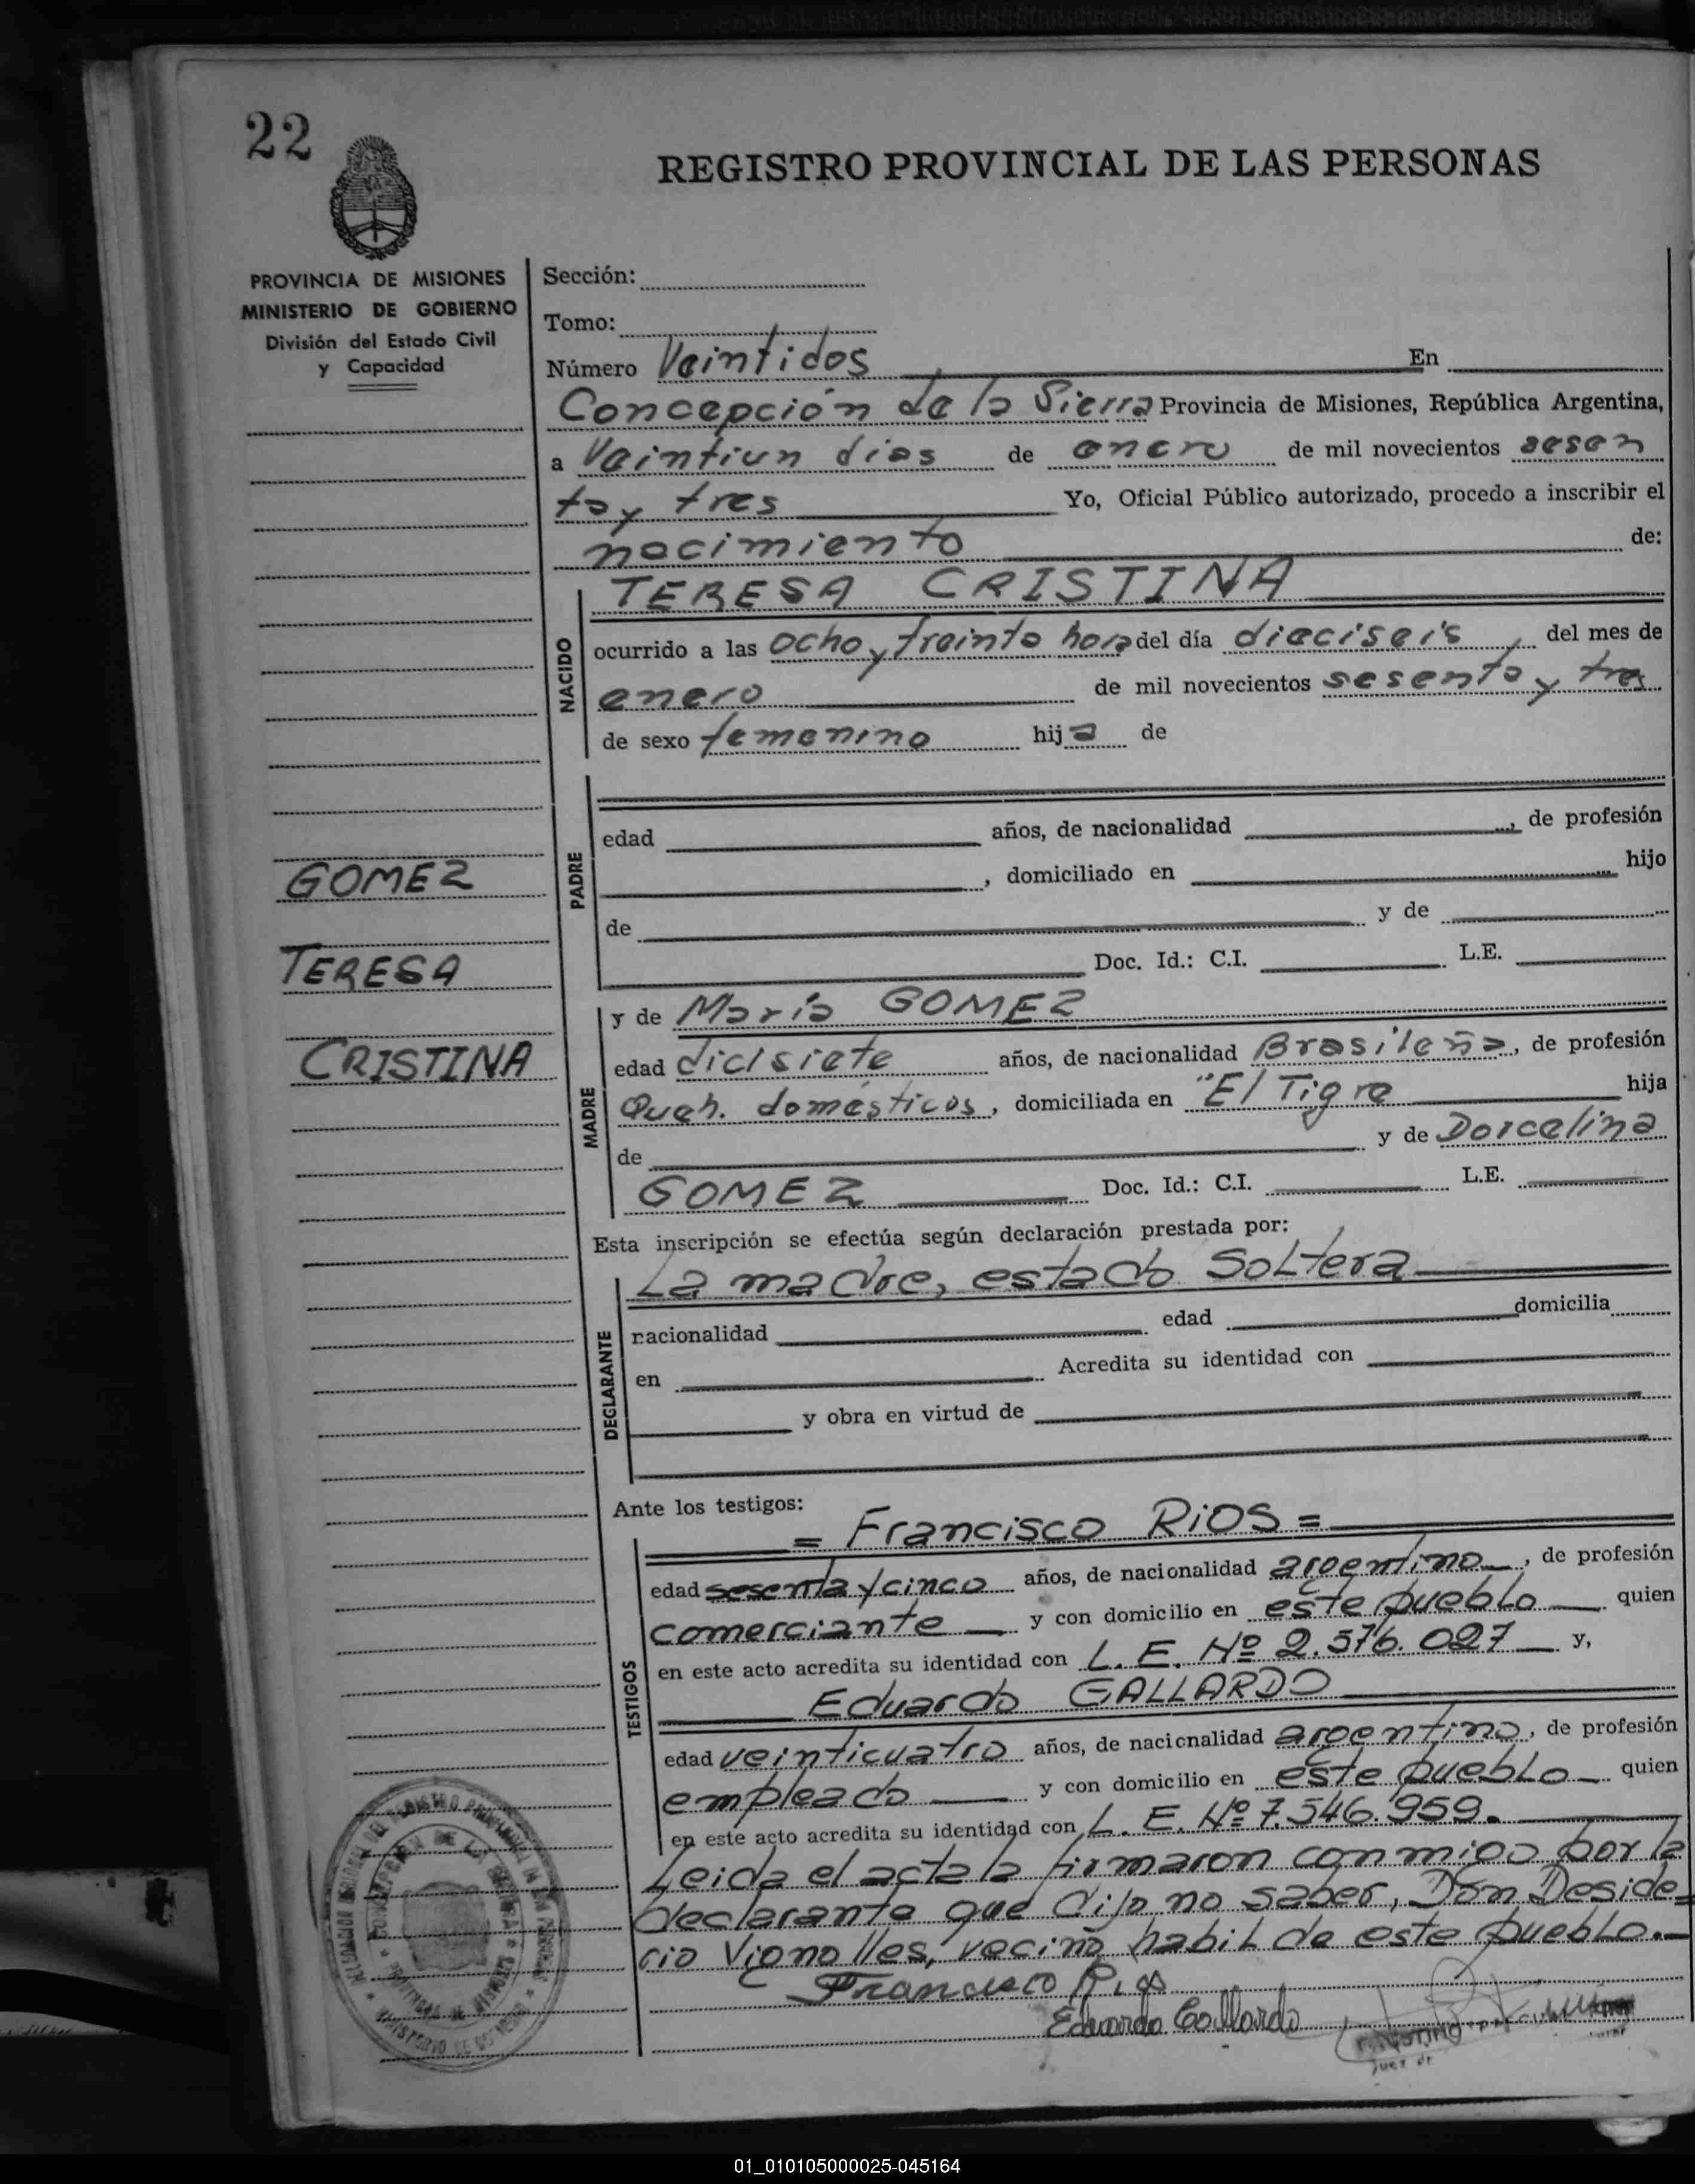 22
REGISTRO PROVINCIAL DE LAS PERSONAS
PROVINCIA DE MISIONES
MINISTERIO DE GOBIERNO
División del Estado Civil
y Capacidad
Sección:
Tomo:
Número Veintidos En
Concepción de la Sierra Provincia de Misiones, República Argentina,
a Veintiun dias de enero de mil novecientos sesen
ta y tres Yo, Oficial Público autorizado, procedo a inscribir el
nacimiento de:
NACIDO
TERESA CRISTINA
ocurrido a las ocho y treinta hora del día dieciseis, del mes de
enero de mil novecientos sesenta y tres
de sexo femenino hija de
PADRE
edad años, de nacionalidad , de profesión
, domiciliado en hijo
de y de
Doc. Id.: C.I. L.E.
GOMEZ
TERESA
CRISTINA
MADRE
y de María GOMEZ
edad dicisiete años, de nacionalidad Brasileña, de profesión
Queh. domésticos, domiciliada en "El Tigre hija
de y de Dorcelina
GOMEZ Doc. Id.: C.I. L.E.
Esta inscripción se efectúa según declaración prestada por:
DECLARANTE
La madre, estado Soltera
nacionalidad edad domicilia
en Acredita su identidad con
y obra en virtud de
Ante los testigos:
TESTIGOS
= Francisco RiOS =
edad sesenta y cinco años, de nacionalidad argentino, de profesión
comerciante y con domicilio en este pueblo quien
en este acto acredita su identidad con L. E. Nº 2.576.027 y,
Eduardo GALLARDO
edad veinticuatro años, de nacionalidad argentino, de profesión
empleado y con domicilio en este pueblo quien
en este acto acredita su identidad con L. E. Nº 7.546.959.
Leida el acta la firmaron conmigo por la
declarante que dijo no saber, Don Deside=
rio Vignolles, vecino habil de este pueblo.-
Francisco Rios
Eduardo Gallardo
CONCEPCION DE LA SIERRA
01_010105000025-045164